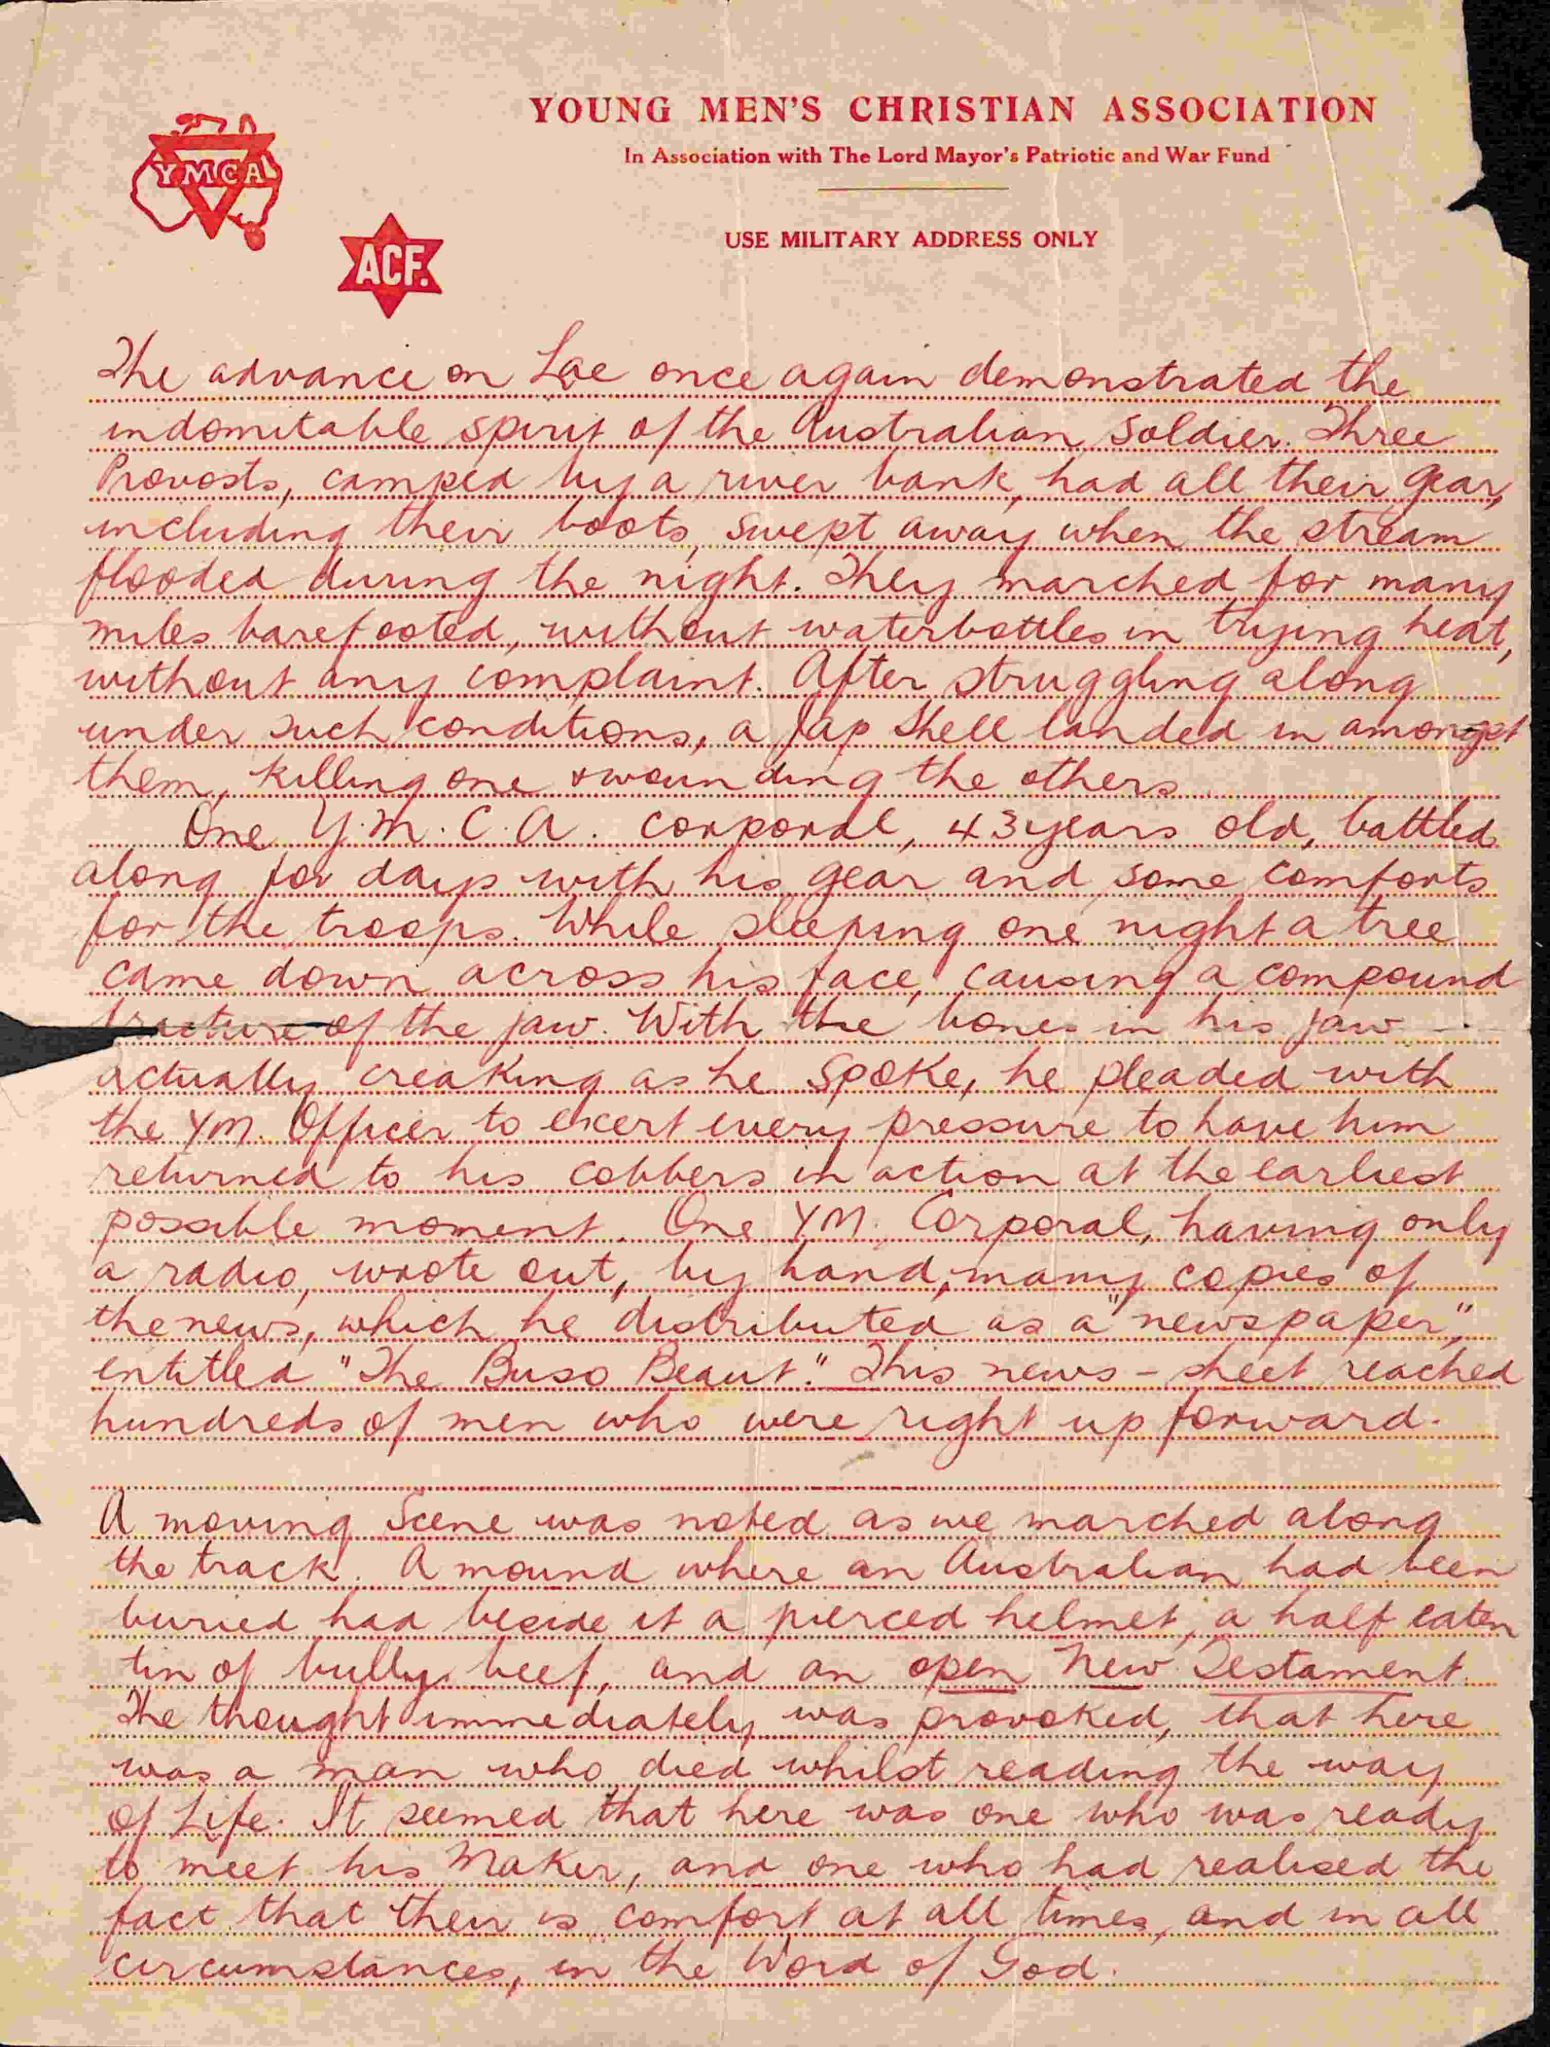 YOUNG MEN'S CHRISTIAN ASSOCIATION
In Association with The Lord Mayor's Patriotic and War Fund
USE MILITARY ADDRESS ONLY
YMCA
ACF.
The advance on Lae once again demonstrated the
indomitable spirit of the Australian Soldier. Three
Provosts, camped by a river bank, had all their gear,
including their boots, swept away when the stream
flooded during the night. They marched for many
miles barefooted, without waterbottles in trying heat,
without any complaint. After struggling along
under such conditions, a Jap shell landed in amongst
them, killing one & wounding the others
One Y.M.C.A. corporal, 43 years old, battled
along for days with his gear and some comforts
for the troops. While sleeping one night a tree
came down across his face, causing a compound
fracture of the jaw. With the bones in his jaw
actually creaking as he spoke, he pleaded with
the YM. Officer to excert every pressure to have him
returned to his cobbers in action at the earliest
possible moment. One YM. Corporal, having only
a radio, wrote out, by hand, many copies of
the news, which he distributed as a "newspaper,"
entitled "The Buso Beaut." This news-sheet reached
hundreds of men who were right up forward.
A moving scene was noted as we marched along
the track. A mound where an Australian had been
buried had beside it a pierced helmet, a half eaten
tin of bully beef, and an open New Testament.
The thought immediately was provoked, that here
was a man who died whilst reading the way
of Life. It seemed that here was one who was ready
to meet his Maker, and one who had realised the
fact that their is comfort at all times, and in all
circumstances, in the Word of God.